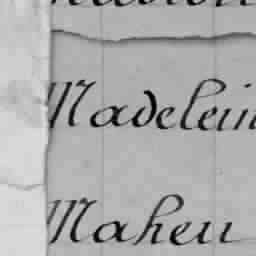 Madelein
Maheu